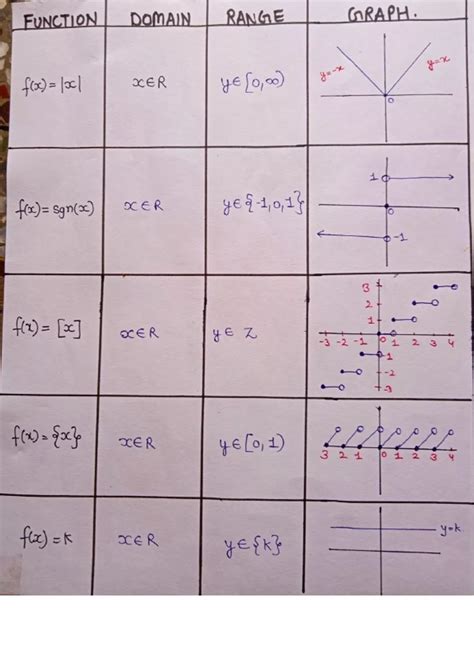 FUNCTION DOMAIN RANGE GRAPH.
f(x)=|x| x∈R y∈[0,∞) y=-x y=x 0
f(x)=sgn(x) x∈R y∈{-1,0,1} 1 0 -1
f(x)=[x] x∈R y∈ Z
3
2
1
-3 -2 -1 0 1 2 3 4
-1
-2
-3
f(x)={x} x∈R y∈[0,1)
3 2 1 0 1 2 3 4
f(x)=K x∈R y∈{K} y=k